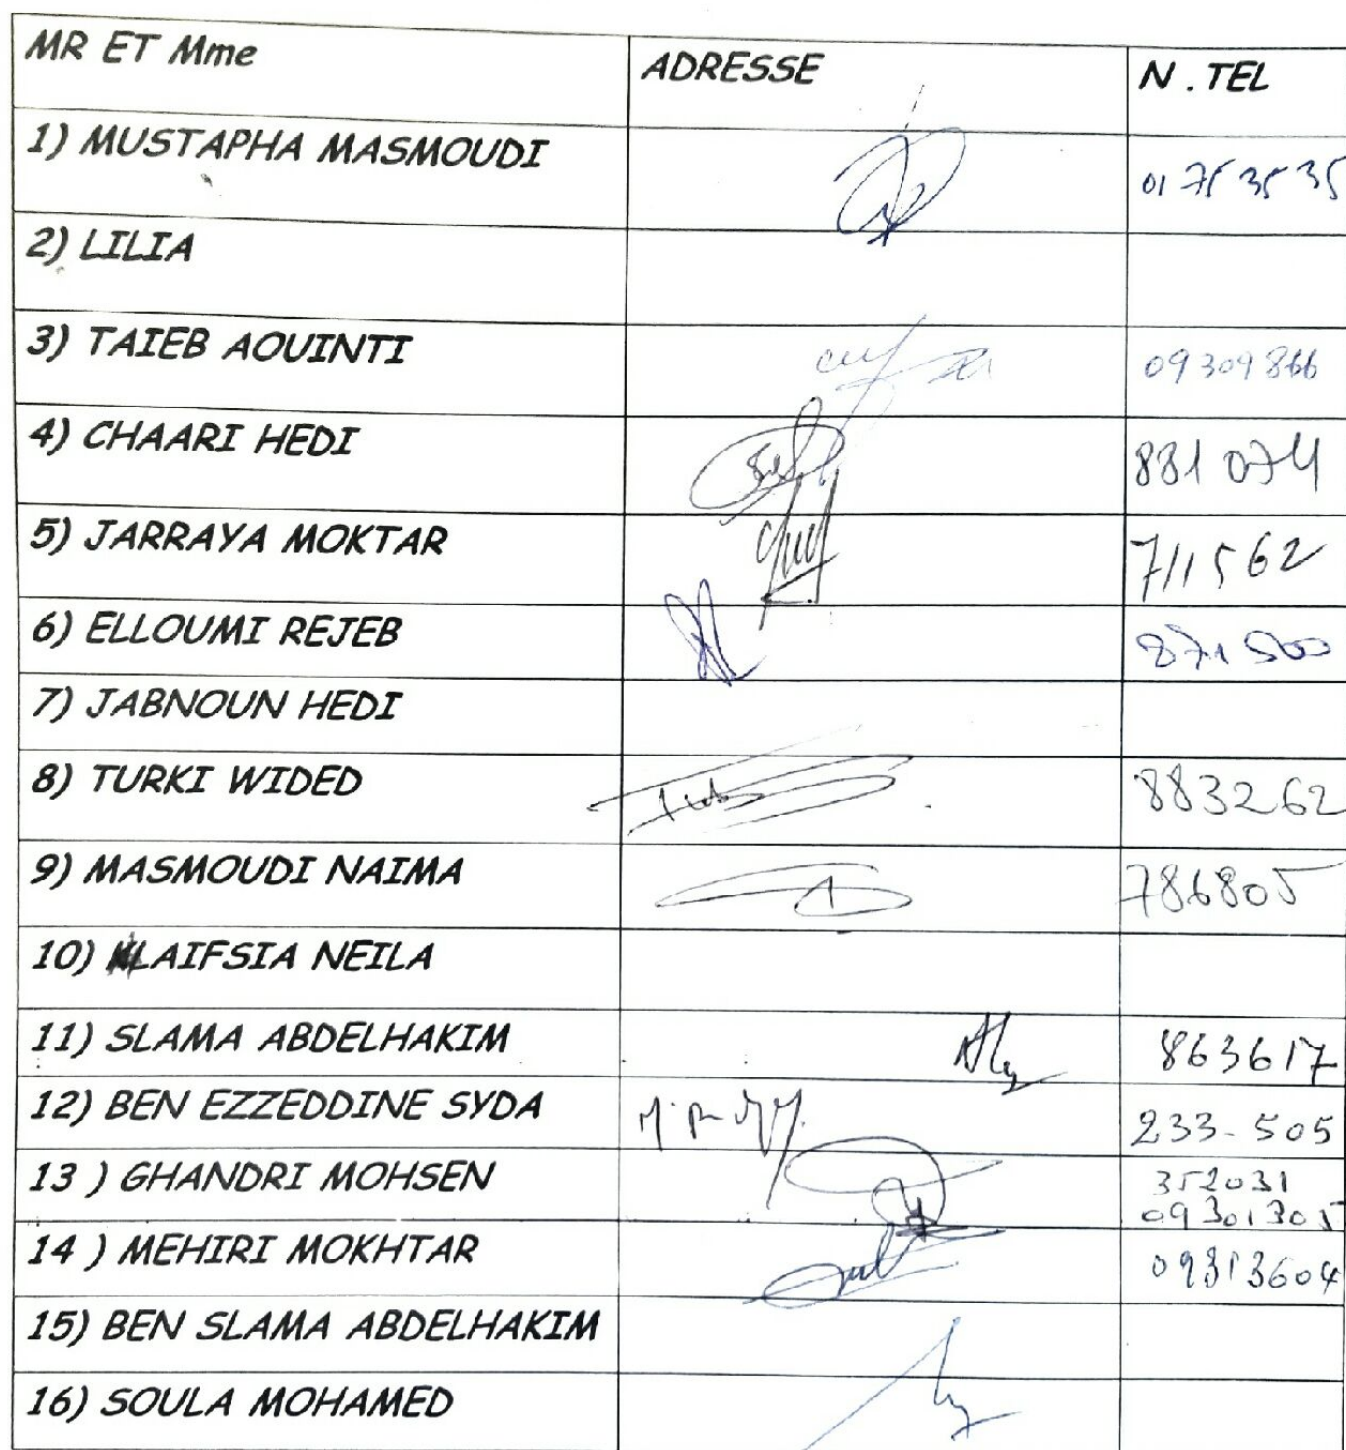 MR ET Mme ADRESSE N . TEL
1) MUSTAPHA MASMOUDI 01 753535
2) LILIA
3) TAIEB AOUINTI 09309866
4) CHAARI HEDI 831 074
5) JARRAYA MOKTAR 711562
6) ELLOUMI REJEB 871 500
7) JABNOUN HEDI
8) TURKI WIDED 883262
9) MASMOUDI NAIMA 786805
10) KLAIFSIA NEILA
11) SLAMA ABDELHAKIM 863617
12) BEN EZZEDDINE SYDA 233-505
13 ) GHANDRI MOHSEN 352031
09301305
14 ) MEHIRI MOKHTAR 09313604
15) BEN SLAMA ABDELHAKIM
16) SOULA MOHAMED